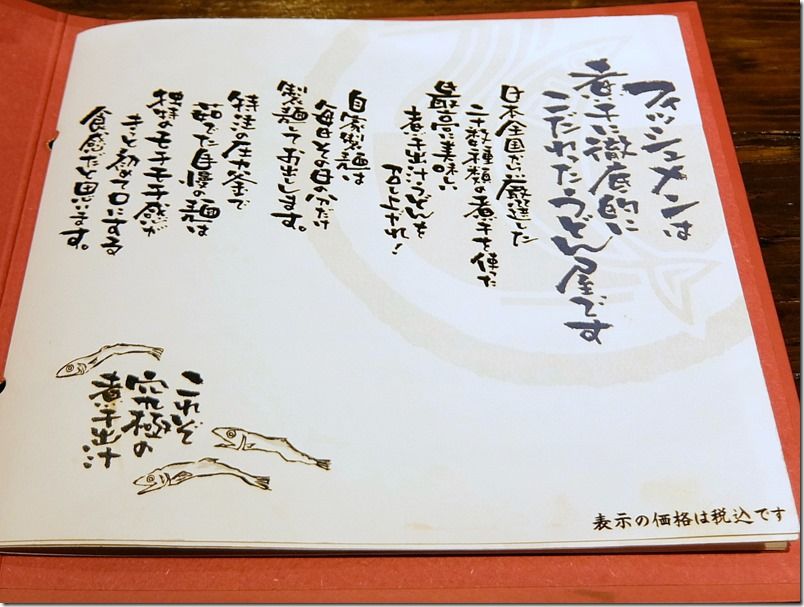 フィッシュメンは
煮干に徹底的に
こだわったうどん屋です
日本全国から厳選した
二十数種類の煮干を使った
最高に美味しい
煮干出汁うどんを
召し上がれ!
自家製麺は
毎日その日の分だけ
製麺してお出しします。
特注の圧力釜で
茹でた自慢の麺は
独特のモチモチ感が
きっと初めて口にする
食感だと思います。
これぞ
究極の
煮干出汁
表示の価格は税込です